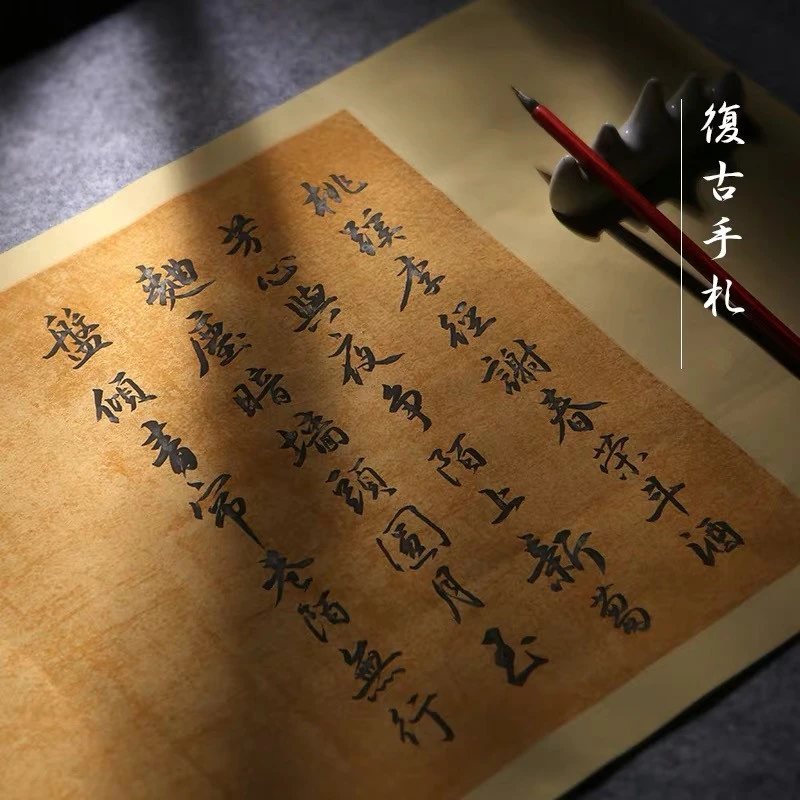 桃蹊李徑謝春榮斗酒
芳心與夜争陌上新蒭
麹塵暗墻頭圓月玉
盤傾青帘巷陌無行
復古手札